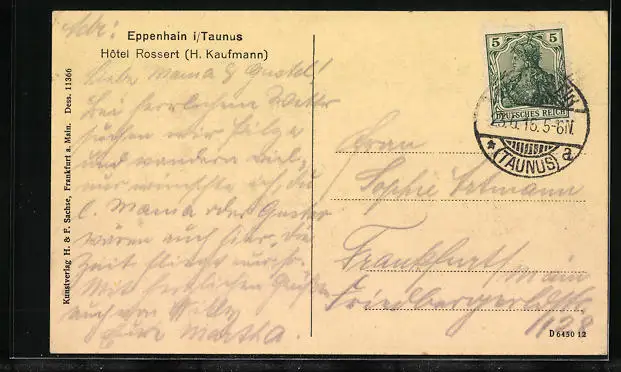 Adr:
Eppenhain i/Taunus
Hôtel Rossert (H. Kaufmann)
Liebe Mama & Gustel!
Bei herrlichem Wetter
suchen wir Pilze
und wandern viel,
nur wünschte ich, du
l. Mama oder Gustel
wären auch hier. Die
Zeit fliegt nur so.
Mit herzlichen Grüßen
auch von Willy
Eure Martha.
Kunstverlag H. & F. Sachse, Frankfurt a. Main. Dess. 11366
5 5
DEUTSCHES REICH
5-6N.
(TAUNUS) a
Frau
Sophie
Frankfurt/Main
Friedbergerldstr.
D 6450 12